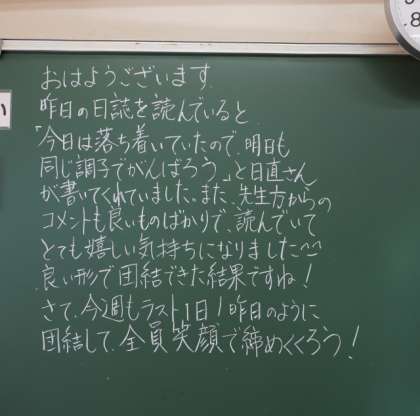 おはようございます.
昨日の日誌を読んでいると.
「今日は落ち着いていたので、明日も
同じ調子でがんばろう。」と日直さん
が書いてくれていました。また、先生方からの
コメントも良いものばかりで、読んでいて
とても嬉しい気持ちになりました^^
良い形で団結できた結果ですね!
さて、今週もラスト1日!昨日のように
団結して、全員笑顔で締めくくろう!
い
8